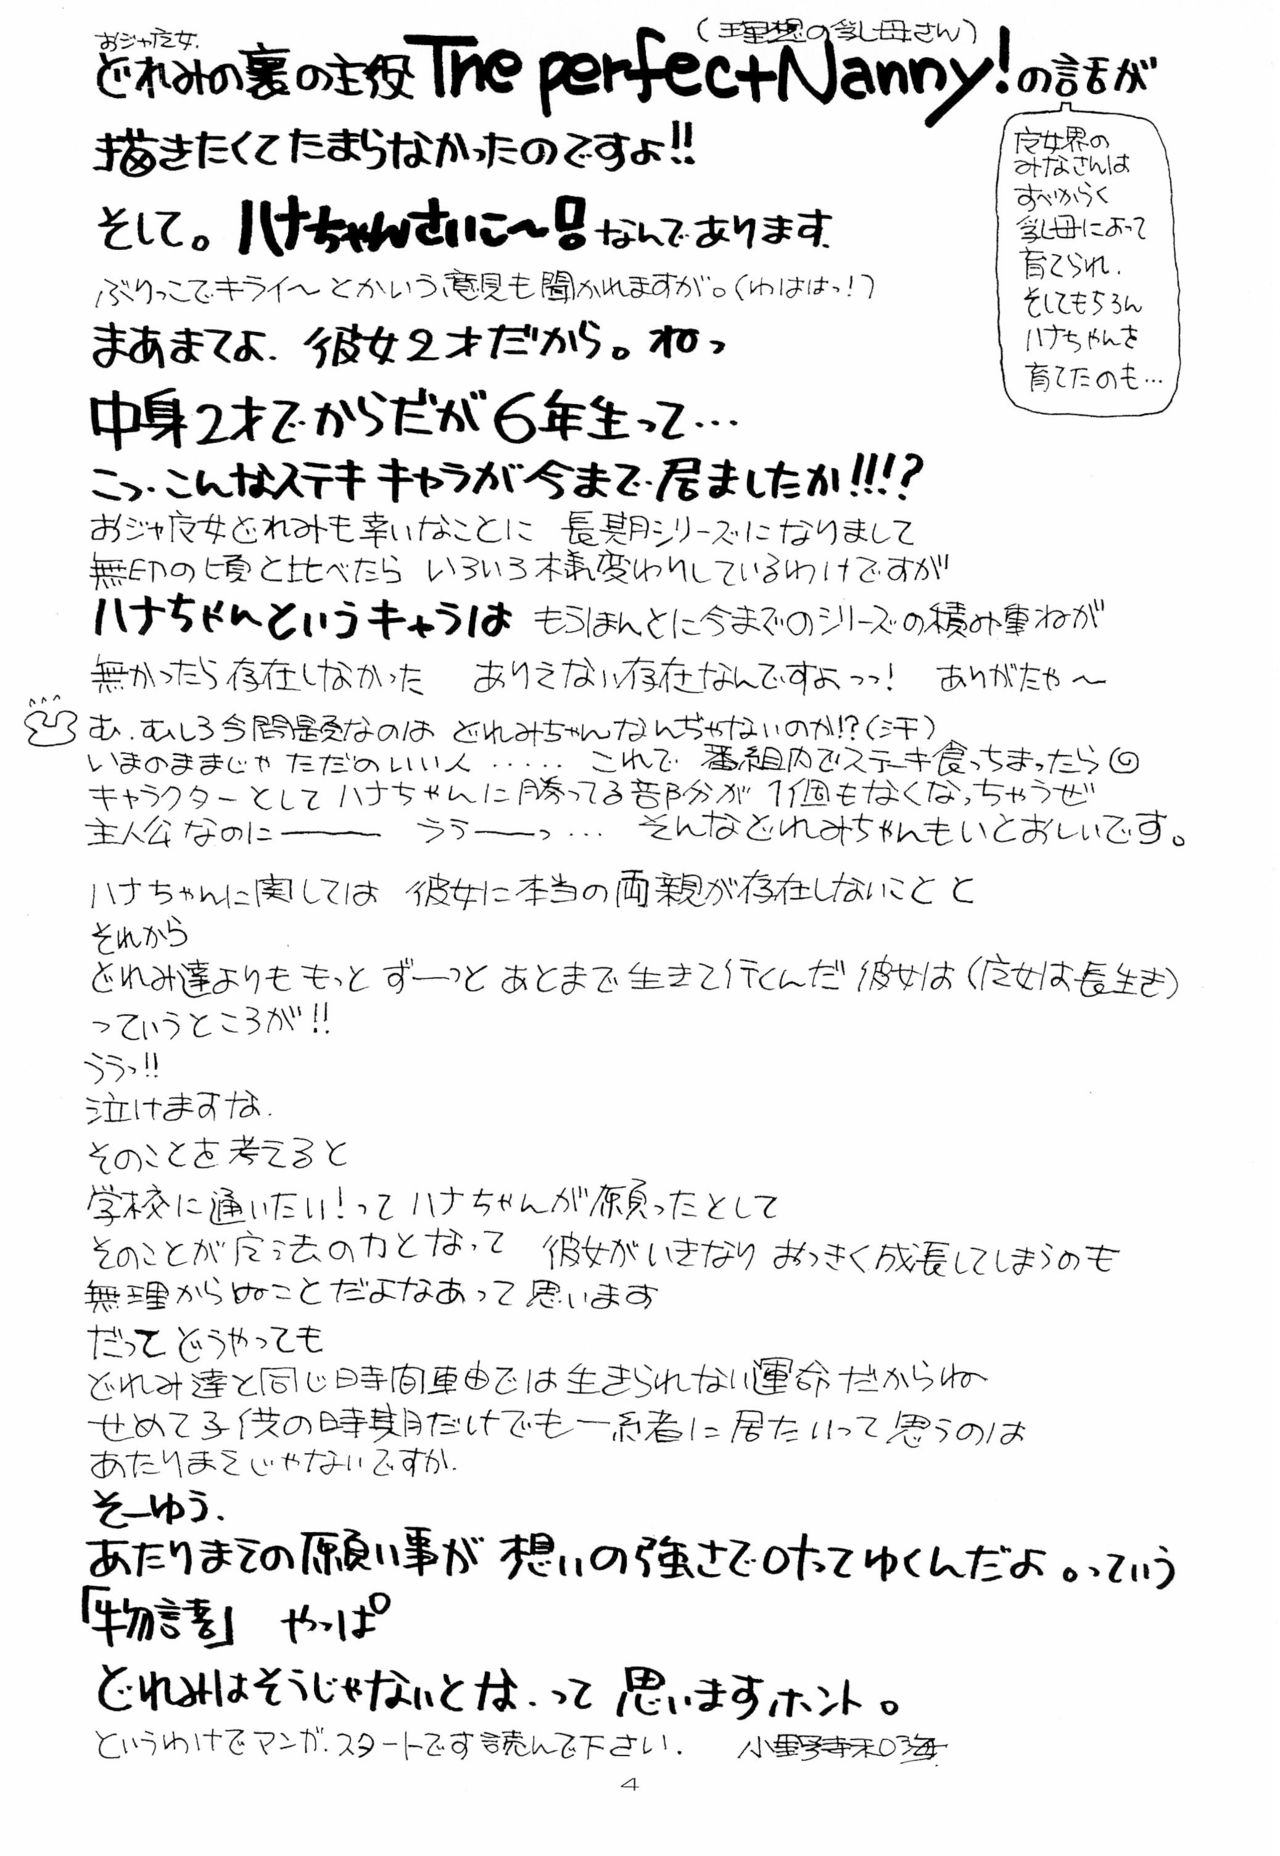 おジャ魔女
(理想の乳母さん)
どれみの裏の主役The perfect Nanny!の話が
描きたくてたまらなかったのですよ!!
そして。ハナちゃんさいこ〜!なんであります.
ぶりっこでキライ〜とかいう意見も聞かれますが。(わははっ!)
まあまてよ. 彼女2才だから。ねっ
中身2才でからだが6年生って…
こっ.こんなステキキャラが今まで居ましたか!!!?
魔女界の
みなさんは
すべからく
乳母によって
育てられ.
そしてもちろん
ハナちゃんを
育てたのも…
おジャ魔女どれみも幸いなことに 長期シリーズになりまして
無印の頃と比べたら いろいろ様変わりしているわけですが
ハナちゃんというキャラは もうほんとに今までのシリーズの積み重ねが
無かったら存在しなかった ありえない存在なんですよっっ! ありがたや〜
む.むしろ今問題なのは どれみちゃんなんぢゃないのか!?(汗)
いまのままじゃ ただのいい人 ‥‥‥ これで 番組内でステーキ食っちまったら
キャラクターとしてハナちゃんに勝ってる部分が 1個もなくなっちゃうぜ
主人公なのに―― ううーっ… そんなどれみちゃんもいとおしいです。
ハナちゃんに関しては 彼女に本当の両親が存在しないことと
それから
どれみ達よりも もっと ずーっと あとまで生きて行くんだ 彼女は(魔女は長生き)
っていうところが!!
ううっ!!
泣けますな.
そのことを考えると
学校に通いたい!ってハナちゃんが願ったとして
そのことが魔法の力となって 彼女がいきなり おっきく成長してしまうのも
無理からぬことだよなあって思います
だって どうやっても
どれみ達と同じ時間軸では生きられない運命だからね
せめて子供の時期だけでも一緒に居たいって思うのは
あたりまえじゃないですか.
そーゆう.
あたりまえの願い事が 想いの強さで叶ってゆくんだよ。っていう
「物語」 やっぱ
どれみはそうじゃないとな.って 思いますホント。
というわけでマンガ.スタートです読んで下さい.
4